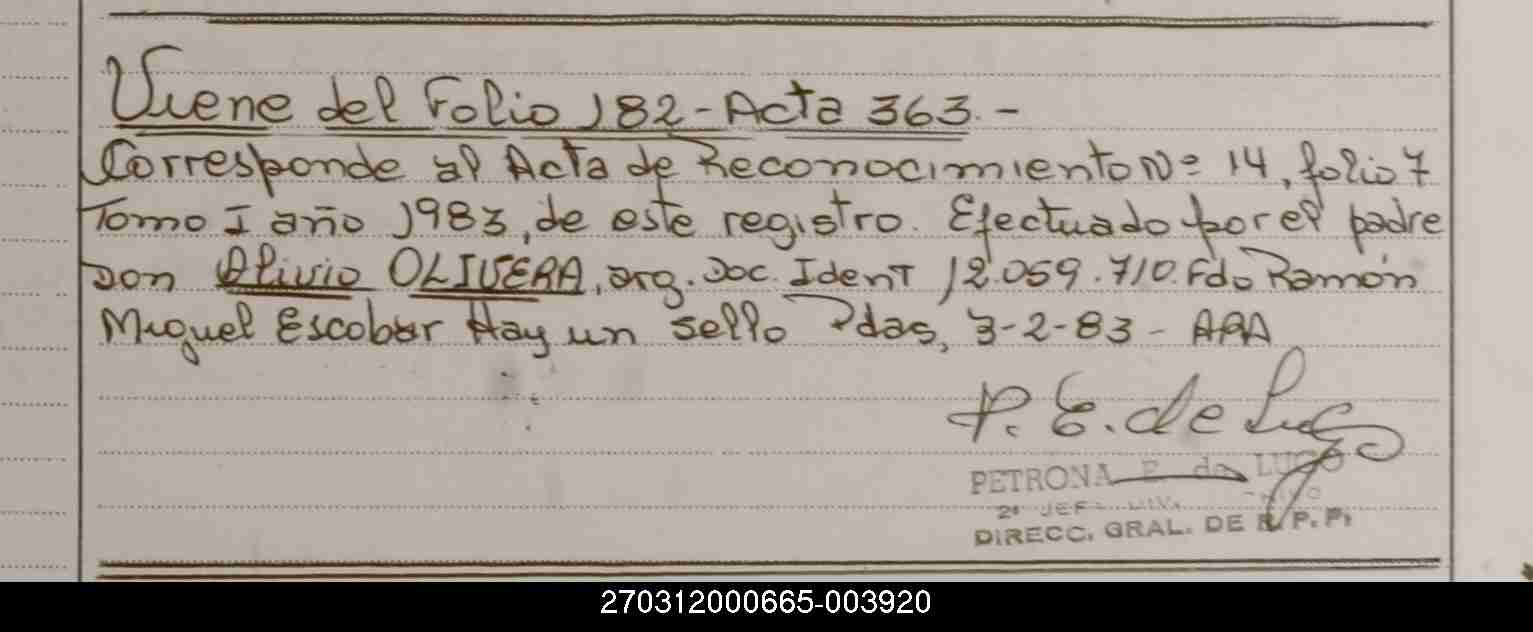 Viene del Folio 182 - Acta 363. -
Corresponde al Acta de Reconocimiento Nº 14, folio 7
Tomo I año 1983, de este registro. Efectuado por el padre
Don Olivio OLIVERA, arg. Doc. Ident 12.059.710. Fdo Ramón
Miguel Escobar Hay un sello Pdas, 3-2-83 - APA
P. E. de Lugo
PETRONA E. de LUGO
2º JEF
DIRECC. GRAL. DE R. P. P.
270312000665-003920